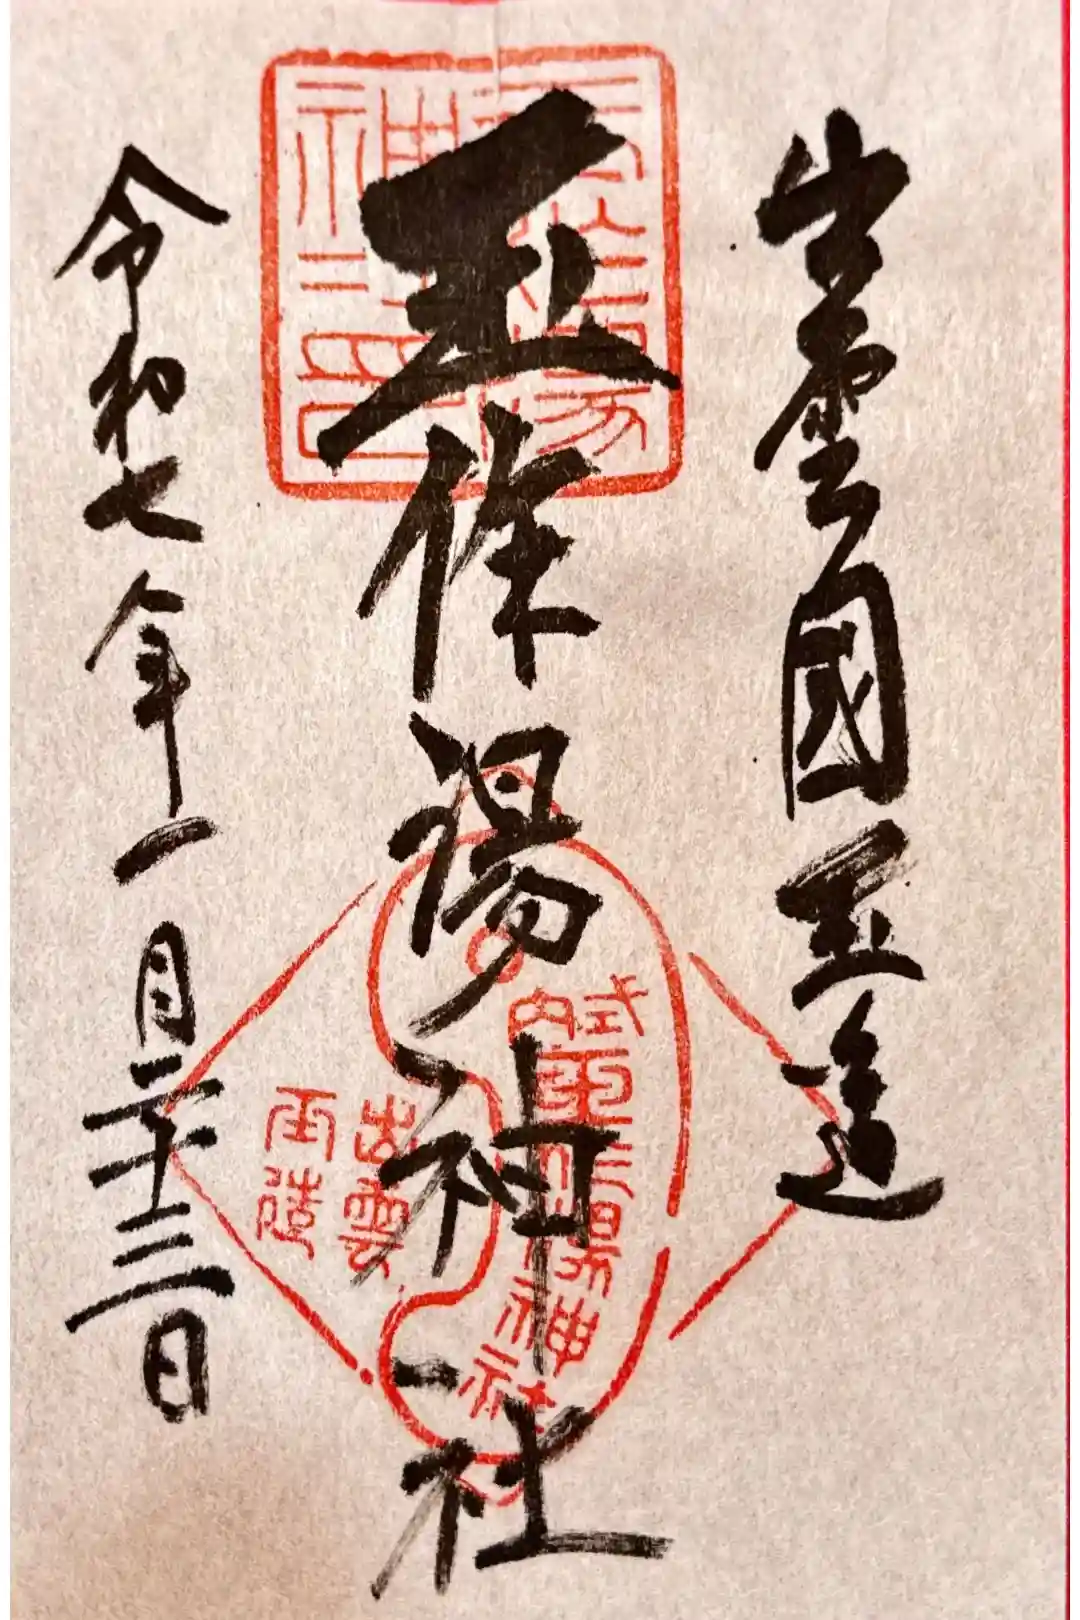 出雲國玉造
玉作湯神社
令和七年一月二十三日
玉作湯
神社印
式内
玉作湯神社
出雲
玉造